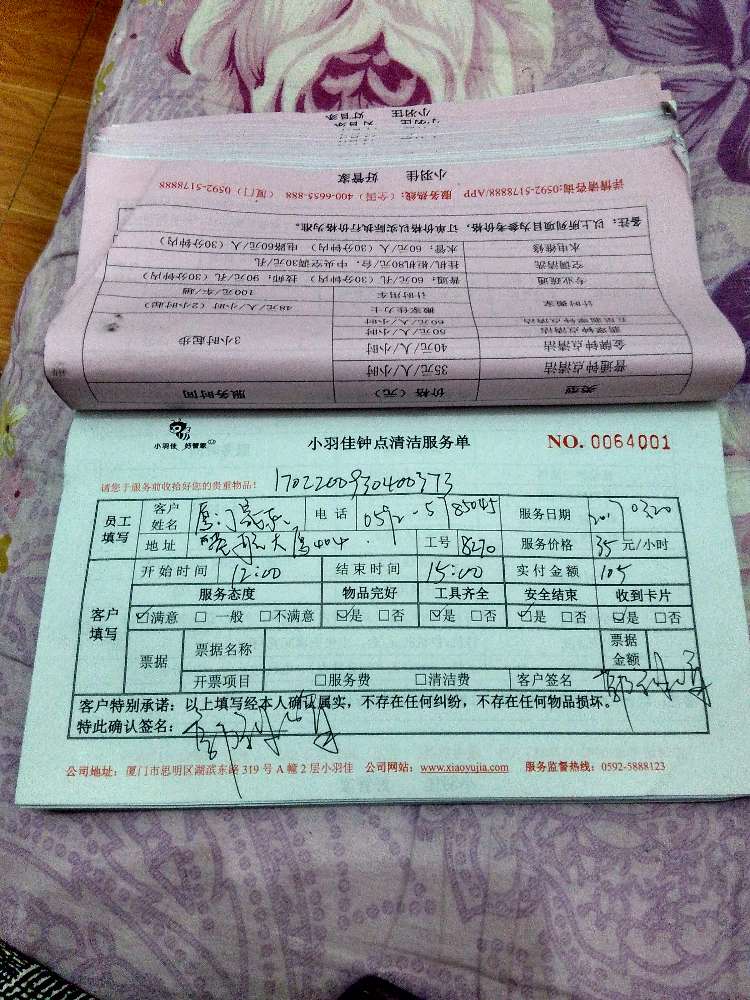 小羽佳 好管家
小羽佳 好管家
详情请咨询:0592-5178888/APP 服务热线:(全国)400-6655-888 (厦门)0592-5178888
备注:以上所列项目为参考价格,订单价格以实际执行价格为准。
水电维修 水管:60元/人(30分钟内) 电路60元/人(30分钟内)
空调清洗 挂机/柜机80元/台,中央空调30元/孔
专业疏通 普通:60元/孔(30分钟内) 技师:90元/孔(30分钟内)
计时用车 100元/车/趟
计时搬家 搬家佳力士 48元/人/小时(2小时起)
60元/人/小时
翡翠钟点清洁 50元/人/小时
金牌钟点清洁 40元/人/小时 3小时起步
普通钟点清洁 35元/人/小时
类型 价格(元) 服务时间
小羽佳 好管家 小羽佳钟点清洁服务单 NO. 0064001
请您于服务前收拾好您的贵重物品! 1702200930400373
员工填写 客户姓名 电话 0592-5785045 服务日期 20170320
地址 大厦404 工号 8270 服务价格 35 元/小时
客户填写 开始时间 12:00 结束时间 15:00 实付金额 105
服务态度 物品完好 工具齐全 安全结束 收到卡片
☑满意 □一般 □不满意 ☑是 □否 ☑是 □否 ☑是 □否 ☑是 □否
票据 票据名称 票据金额
开票项目 □服务费 □清洁费 客户签名
客户特别承诺:以上填写经本人确认属实,不存在任何纠纷,不存在任何物品损坏。
特此确认签名:
公司地址:厦门市思明区湖滨东路 319 号 A 幢 2 层小羽佳 公司网站:www.xiaoyujia.com 服务监督热线:0592-5888123